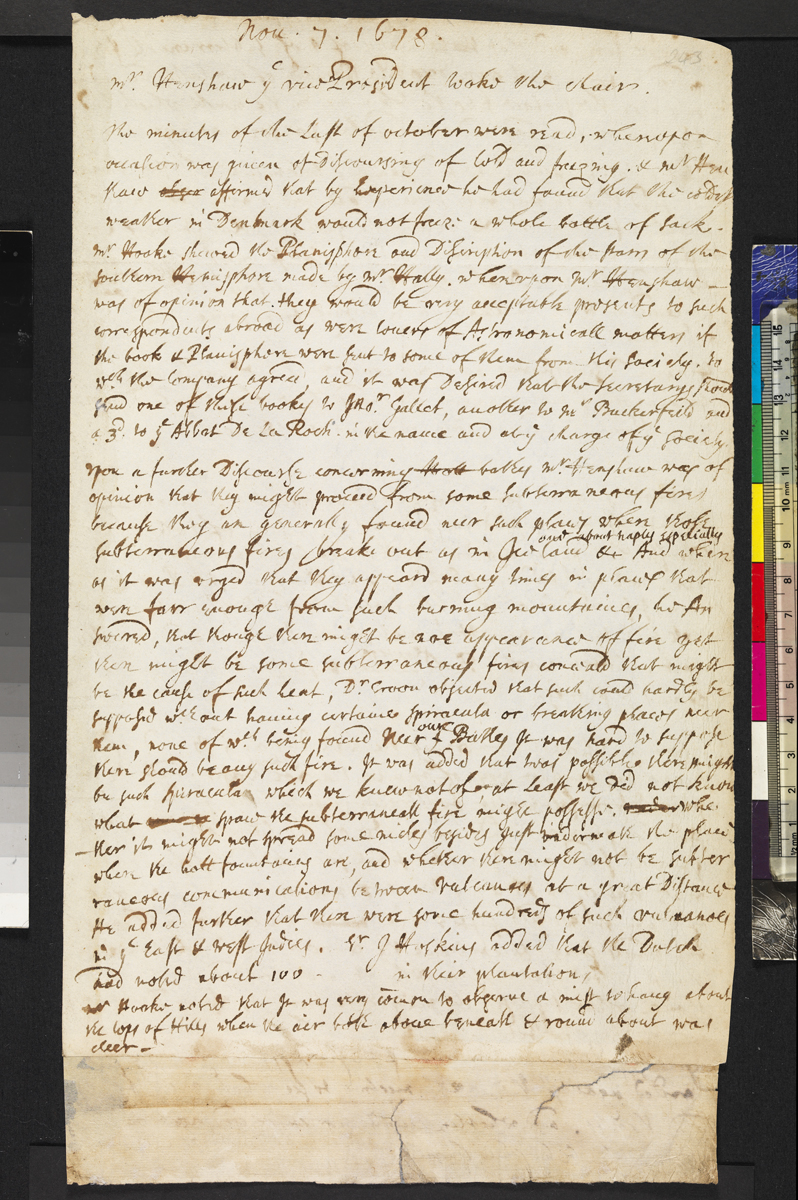 Nov. 7. 1678.
mr. Henshaw ye vice President tooke the chair.
the minutes of the Last of october were read, whereupon
occasion was given of Discoursing of Cold and freezing. & mr Hen
shaw affirmed that by Experience he had found that the coldest
weather in Denmark would not freeze a whole bottle of sack.
mr. Hooke shewed the Planisphere and Discription of the starrs of the
southern Hemisphere made by mr Hally. whereupon mr Henshaw
was of opinion that they would be very acceptable presents to such
correspondents abroad as were lovers of Astronomicall matters if
the book & Planisphere were sent to some of them from this Society. to
wch the Company agreed, and it was Desired that the Secretarys should
send one of these bookes to Gallet, another to mr Buckerfeild and
a 3d. to ye Abbat De La Roch. in the name and at ye charge of ye Society.
upon a further Discourse concerning bathes mr Henshaw was of
opinion that they might proceed from some subterraneous fires
because they are generally found neer such places where those
one about naples especially
subterraneous fires breake out as in Iseland & And where
as it was urged that they appeard many times in places that
were farr enough from such burning mountaines, he An
swered, that though there might be noe appearance of fire yet
there might be some subterraneous fires conceald that might
be the cause of such heat, Dr. Croon objected that such could hardly be
supposed without having certaine spiracula or breathing places neer
them, none of wch being found Neer our Bathes It was hard to suppose
there should be any such fire. It was added that twas possible there might
be such spiracula which we knew not of, or at Least we did not know
what space the subterraneall fire might possesse. whe
ther it might not spread some miles besides just underneath the place
where the hott fountaines are, and whether there might not be subter
raneous communications between vulcanos at a great Distance
He added further that there were some hundreds of such vulcanoes
in ye East & west Indies. Sr. J Hoskins added that the Dutch
had noted about 100 - in their plantations
mr Hooke noted that It was very comon to observe a mist to hang about
the tops of Hills when the air both above beneath & round about was
cleer -